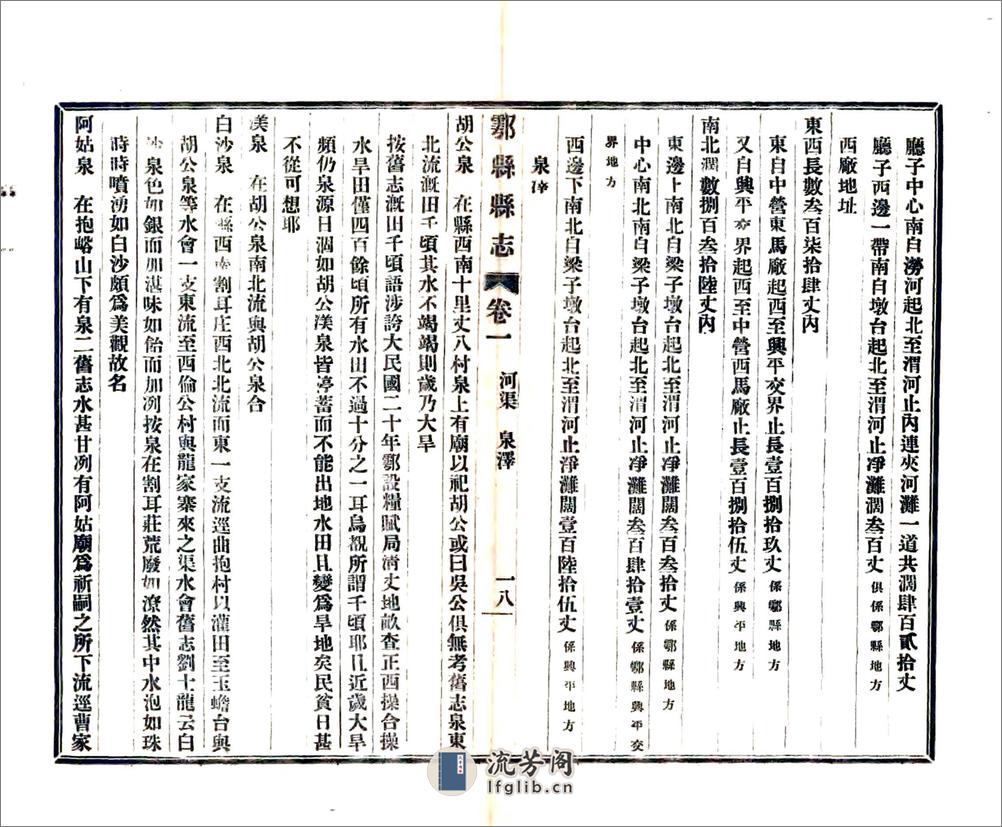 廳子中心南自澇河起北至渭河止內連夾河灘一道共濶肆百貳拾丈
廳子西邊一帶南自墩台起北至渭河止淨灘濶叁百丈 俱係鄠縣地方
西廠地址
東西長數叁百柒拾肆丈內
東自中營東馬廠起西至興平交界止長壹百捌拾玖丈 係鄠縣地方
又自興平交界起西至中營西馬廠止長壹百捌拾伍丈 係興平地方
南北濶數捌百叁拾陸丈內
東邊上南北自梁子墩台起北至渭河止淨灘闊叁百叁拾丈 係鄠縣地方
中心南北南自梁子墩台起北至渭河止淨灘闊叁百肆拾壹丈 係鄠縣興平交
界地方
西邊下南北自梁子墩台起北至渭河止淨灘闊壹百陸拾伍丈 係興平地方
泉澤
鄠縣縣志 卷一 河渠 泉澤 一八
胡公泉 在縣西南十里丈八村泉上有廟以祀胡公或曰吳公俱無考舊志泉東
北流漑田千頃其水不竭竭則歲乃大旱
按舊志漑田千頃語涉誇大民國二十年鄠設糧賦局淸丈地畝查正西操合操
水旱田僅四百餘頃所有水田不過十分之一耳烏覩所謂千頃耶且近歲大旱
頻仍泉源日涸如胡公渼泉皆渟蓄而不能出地水田且變爲旱地矣民貧日甚
不從可想耶
渼泉 在胡公泉南北流與胡公泉合
白沙泉 在縣西南割耳庄西北北流而東一支流逕曲抱村以灌田至玉蟾台與
胡公泉等水會一支東流至西倫公村與龍家寨來之渠水會舊志劉士龍云白
沙泉色如銀而加湛味如飴而加冽按泉在割耳莊荒廢如潦然其中水泡如珠
時時噴湧如白沙頗爲美觀故名
阿姑泉 在抱峪山下有泉二舊志水甚甘冽有阿姑廟爲祈嗣之所下流逕曹家
流芳阁
lfglib.cn